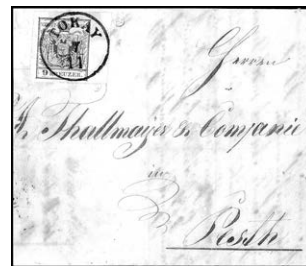 TOKAY
11
9 KREUZER.
Herren
A. Thallmayer & Companie
in
Pesth